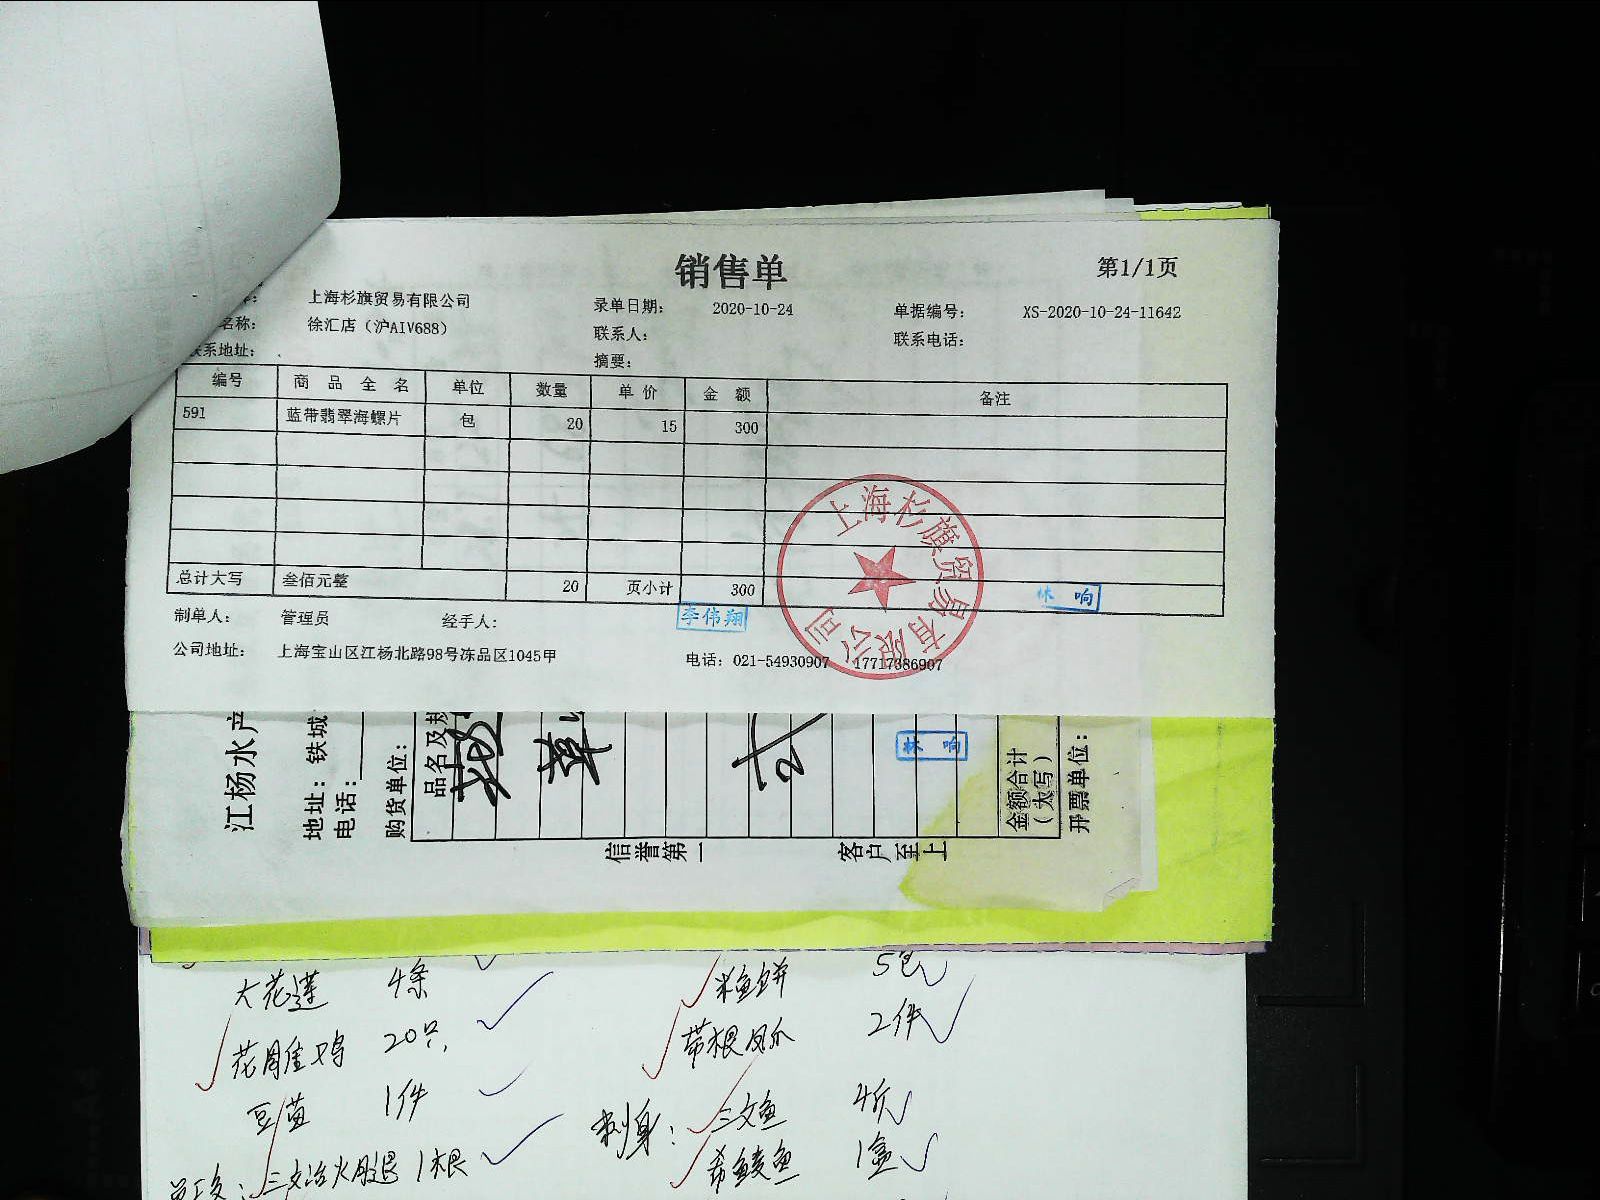 销售单
第1/1页
上海杉旗贸易有限公司 录单日期: 2020-10-24 单据编号: XS-2020-10-24-11642
名称: 徐汇店(沪AIV688) 联系人: 联系电话:
联系地址: 摘要:
编号 商品全名 单位 数量 单价 金额 备注
591 蓝带翡翠海螺片 包 20 15 300
总计大写 叁佰元整 20 页小计 300
制单人: 管理员 经手人: 李伟翔
响
上海杉旗贸易有限公司
公司地址: 上海宝山区江杨北路98号冻品区1045甲 电话: 021-54930907 17717386907
江杨水产
地址: 铁城
电话:
购货单位:
品名及规
草
响
金额合计
(大写)
开票单位:
信誉第一 客户至上
大花莲 4条 米鱼饼 5包
花雕鸡 20只 带根凤爪 2件
豆苗 1件 刺身: 三文鱼 4斤
三文治火腿 1根 希鲮鱼 1盒